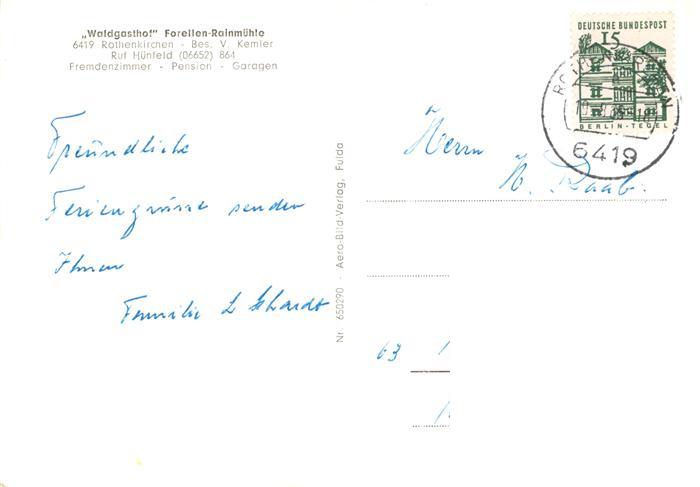 „Waldgasthof“ Forellen-Rainmühle
6419 Rothenkirchen - Bes. V. Kemler
Ruf Hünfeld (06652) 864
Fremdenzimmer - Pension - Garagen
DEUTSCHE BUNDESPOST
15
BERLIN-TEGEL
ROTHENKIRCHEN
6419
Freundliche
Feriengrüsse senden
Ihnen
Familie L
Herrn
K. Raab.
63
Nr. 650290 - Aero-Bild-Verlag, Fulda